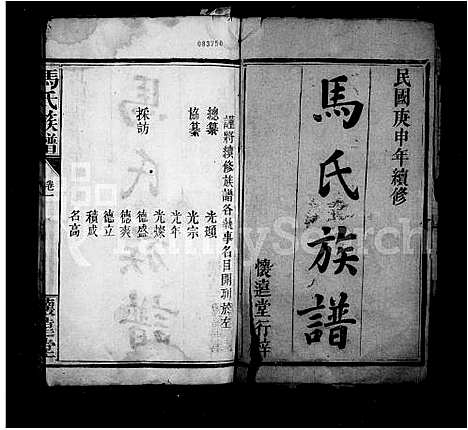 民國庚申年續修
馬氏族譜
懷遠堂行梓
083750
謹將續修族譜各執事名目開列於左
總纂 光頭
協纂 光宗
光年
採訪 光燦
德盛
德爽
德立
積成
名高
馬氏族譜 卷一
FamilySearch